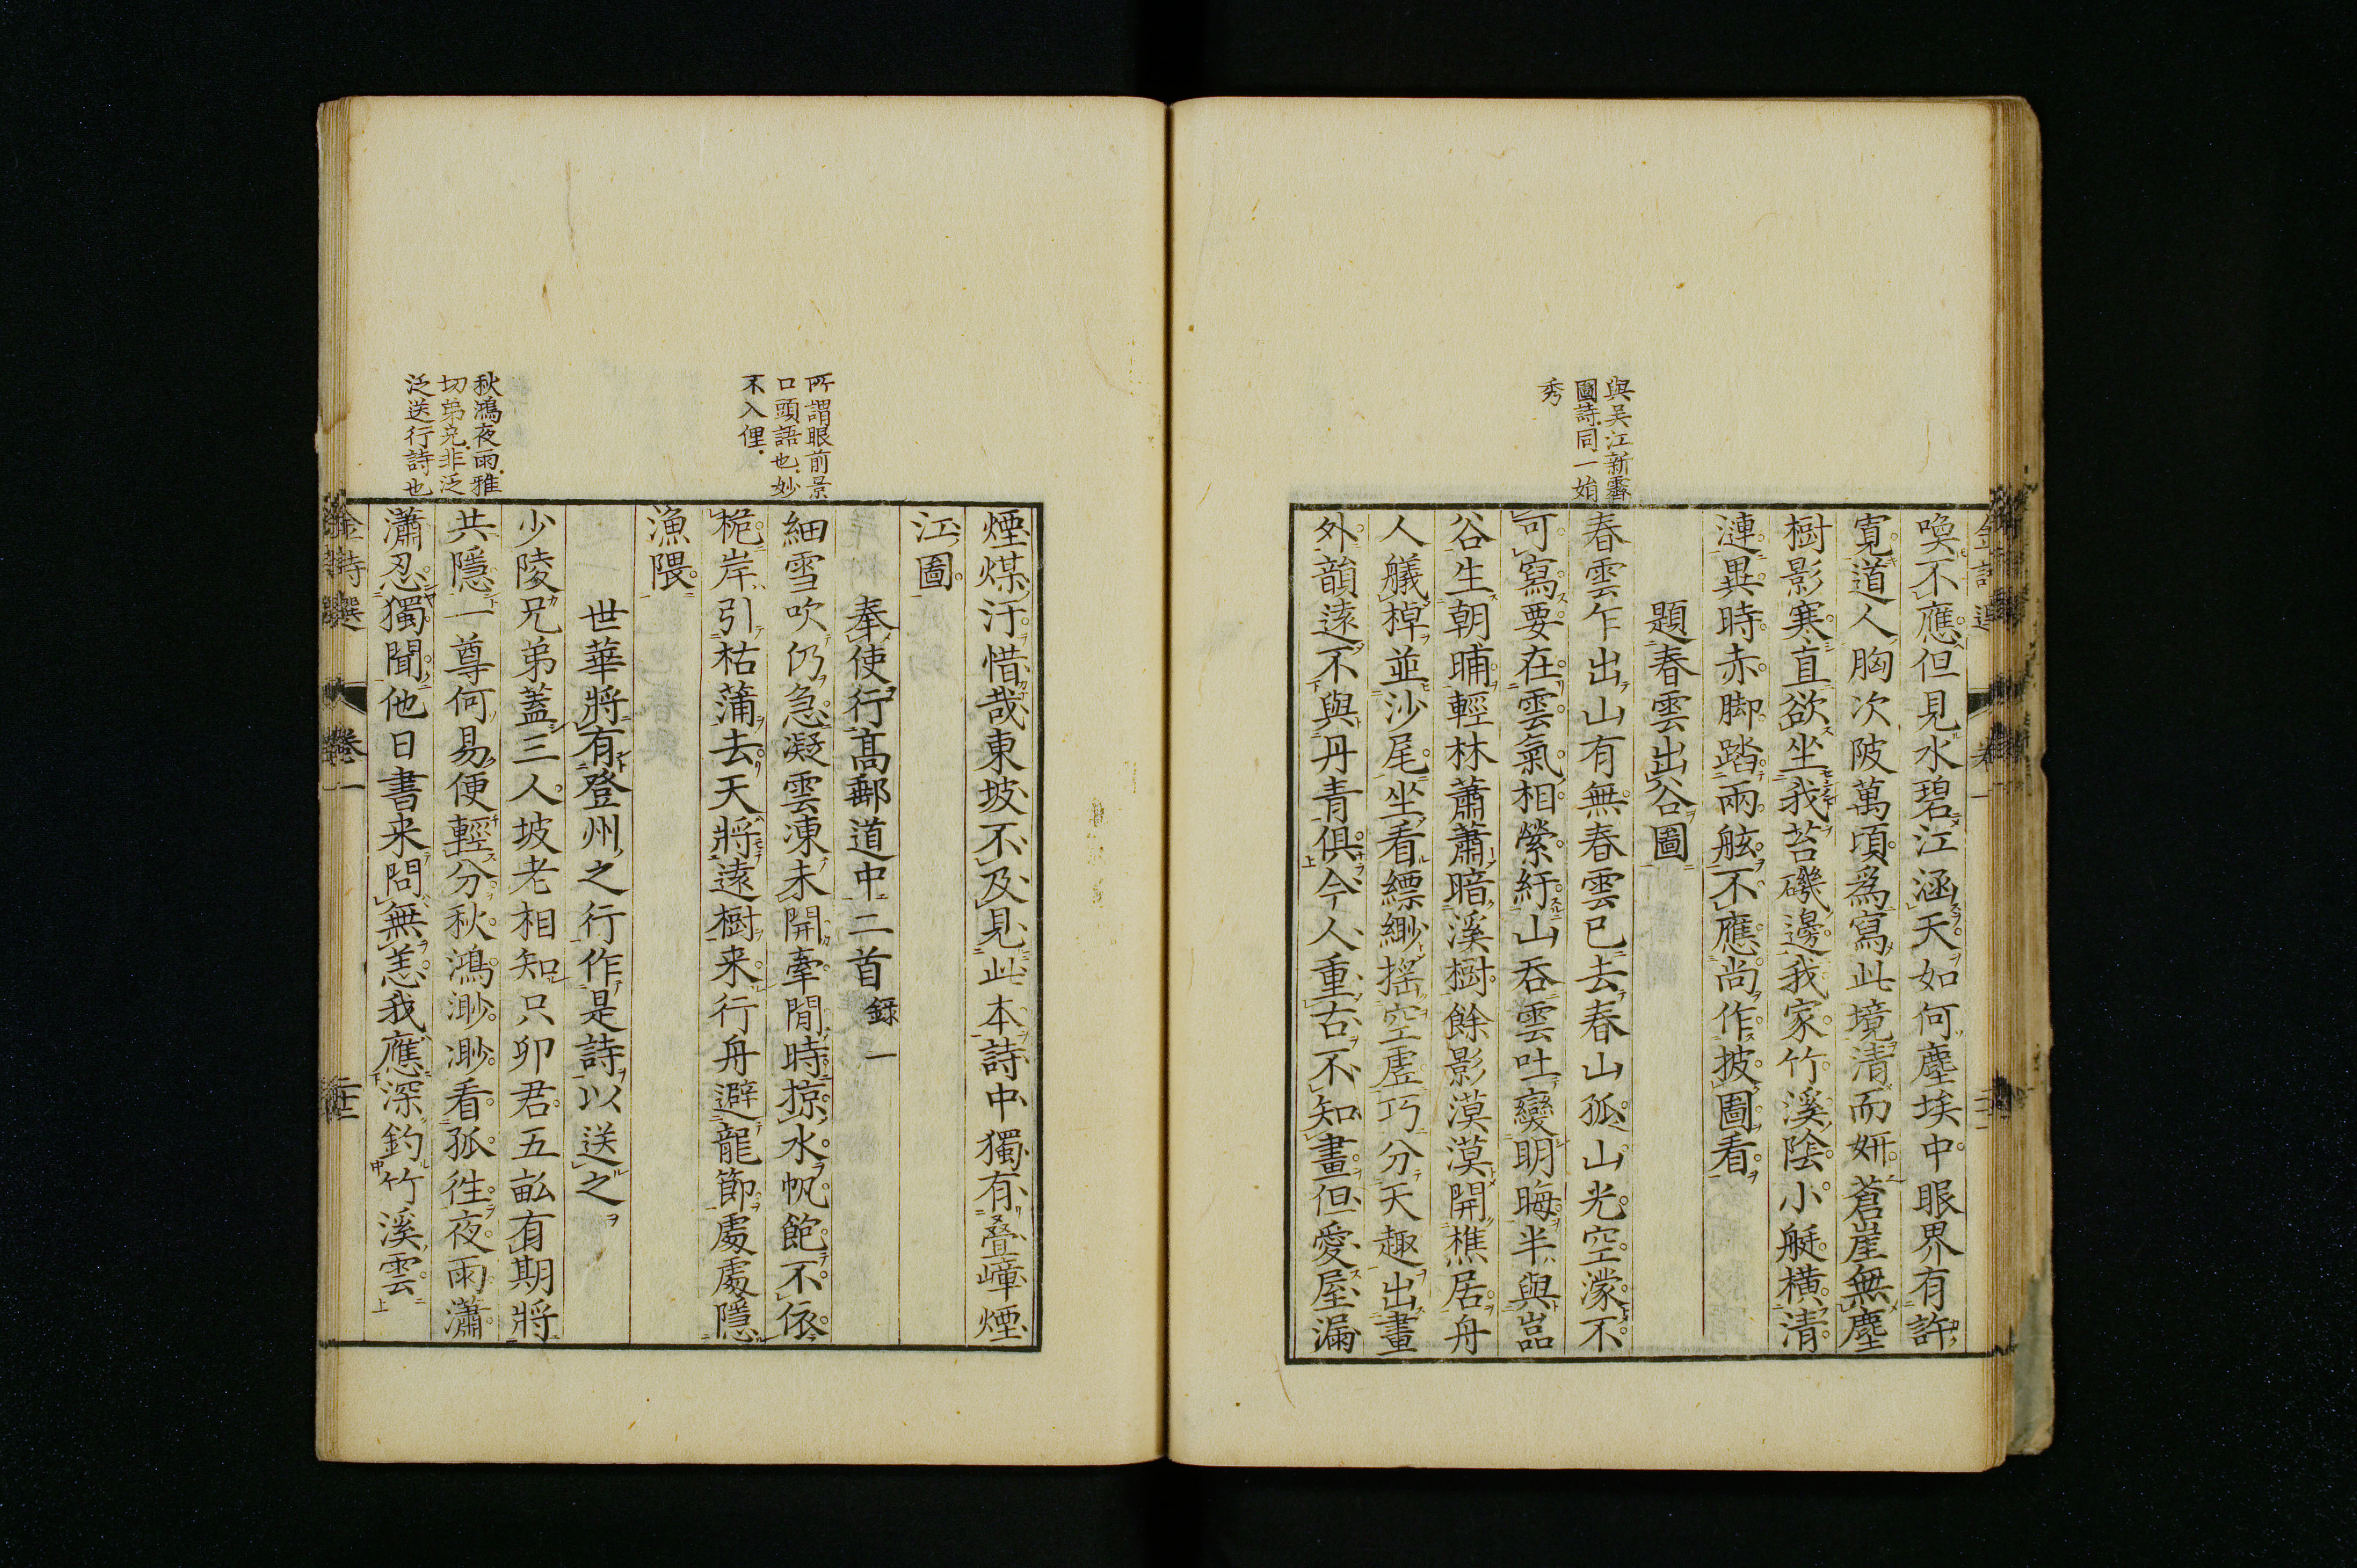 與吴江新霽
圖詩同一娟
秀
喚不應但見水碧江涵天如何塵埃中眼界有許
寬道人胸次陂萬頃爲寫此境清而妍蒼崖無塵
樹影寒直欲坐我苔磯邊我家竹溪陰小艇横清
漣異時赤脚踏兩舷不應尚作披圖看
題春雲出谷圖
春雲乍出山有無春雲已去春山孤山光空濛不
可寫要在雲氣相縈紆山吞雲吐變明晦半與嵓
谷生朝晡輕林蕭蕭暗溪樹餘影漠漠開樵居舟
人艤棹並沙尾坐看縹緲摇空虚巧分天趣出畫
外韻遠不與丹青俱今人重古不知畫但愛屋漏
所謂眼前景
口頭語也妙
不入俚
秋鴻夜雨雅
切弟兄非泛
泛送行詩也
煙煤汙惜哉東坡不及見此本詩中獨有疊嶂煙
江圖
奉使行高郵道中二首録一
細雪吹仍急凝雲凍未開牽閒時掠水帆飽不依
桅岸引枯蒲去天將遠樹来行舟避龍節處處隱
漁隈
世華將有登州之行作是詩以送之
少陵兄弟蓋三人坡老相知只卯君五畝有期將
共隱一尊何易便輕分秋鴻渺渺看孤往夜雨瀟
瀟忍獨聞他日書来問無恙我應深釣竹溪雲
金詩選 卷一